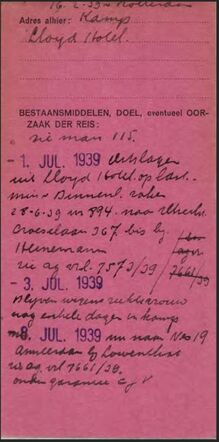 16-2-33 Rotterdam
Adres alhier: Kamp
Lloyd Hotel.
BESTAANSMIDDELEN, DOEL, eventueel OOR-
ZAAK DER REIS:
zie man 115.
-1. JUL. 1939 Ontslagen
uit Lloyd Hotel op last
min v Binnenl. zaken
28-6-39 no 894. naar Utrecht
Croeselaan 367 bis bij
Heinemann
zie ag vrl. 7573/39 / 7661/39
-3. JULI 1939
Blijven wegens ziekte vrouw
nog enkele dagen in kamp
8. JUL. 1939 nu naar 19
Amsterdam bij Lowenthal
zie ag vrl 7661/39.
onder garantie C J V